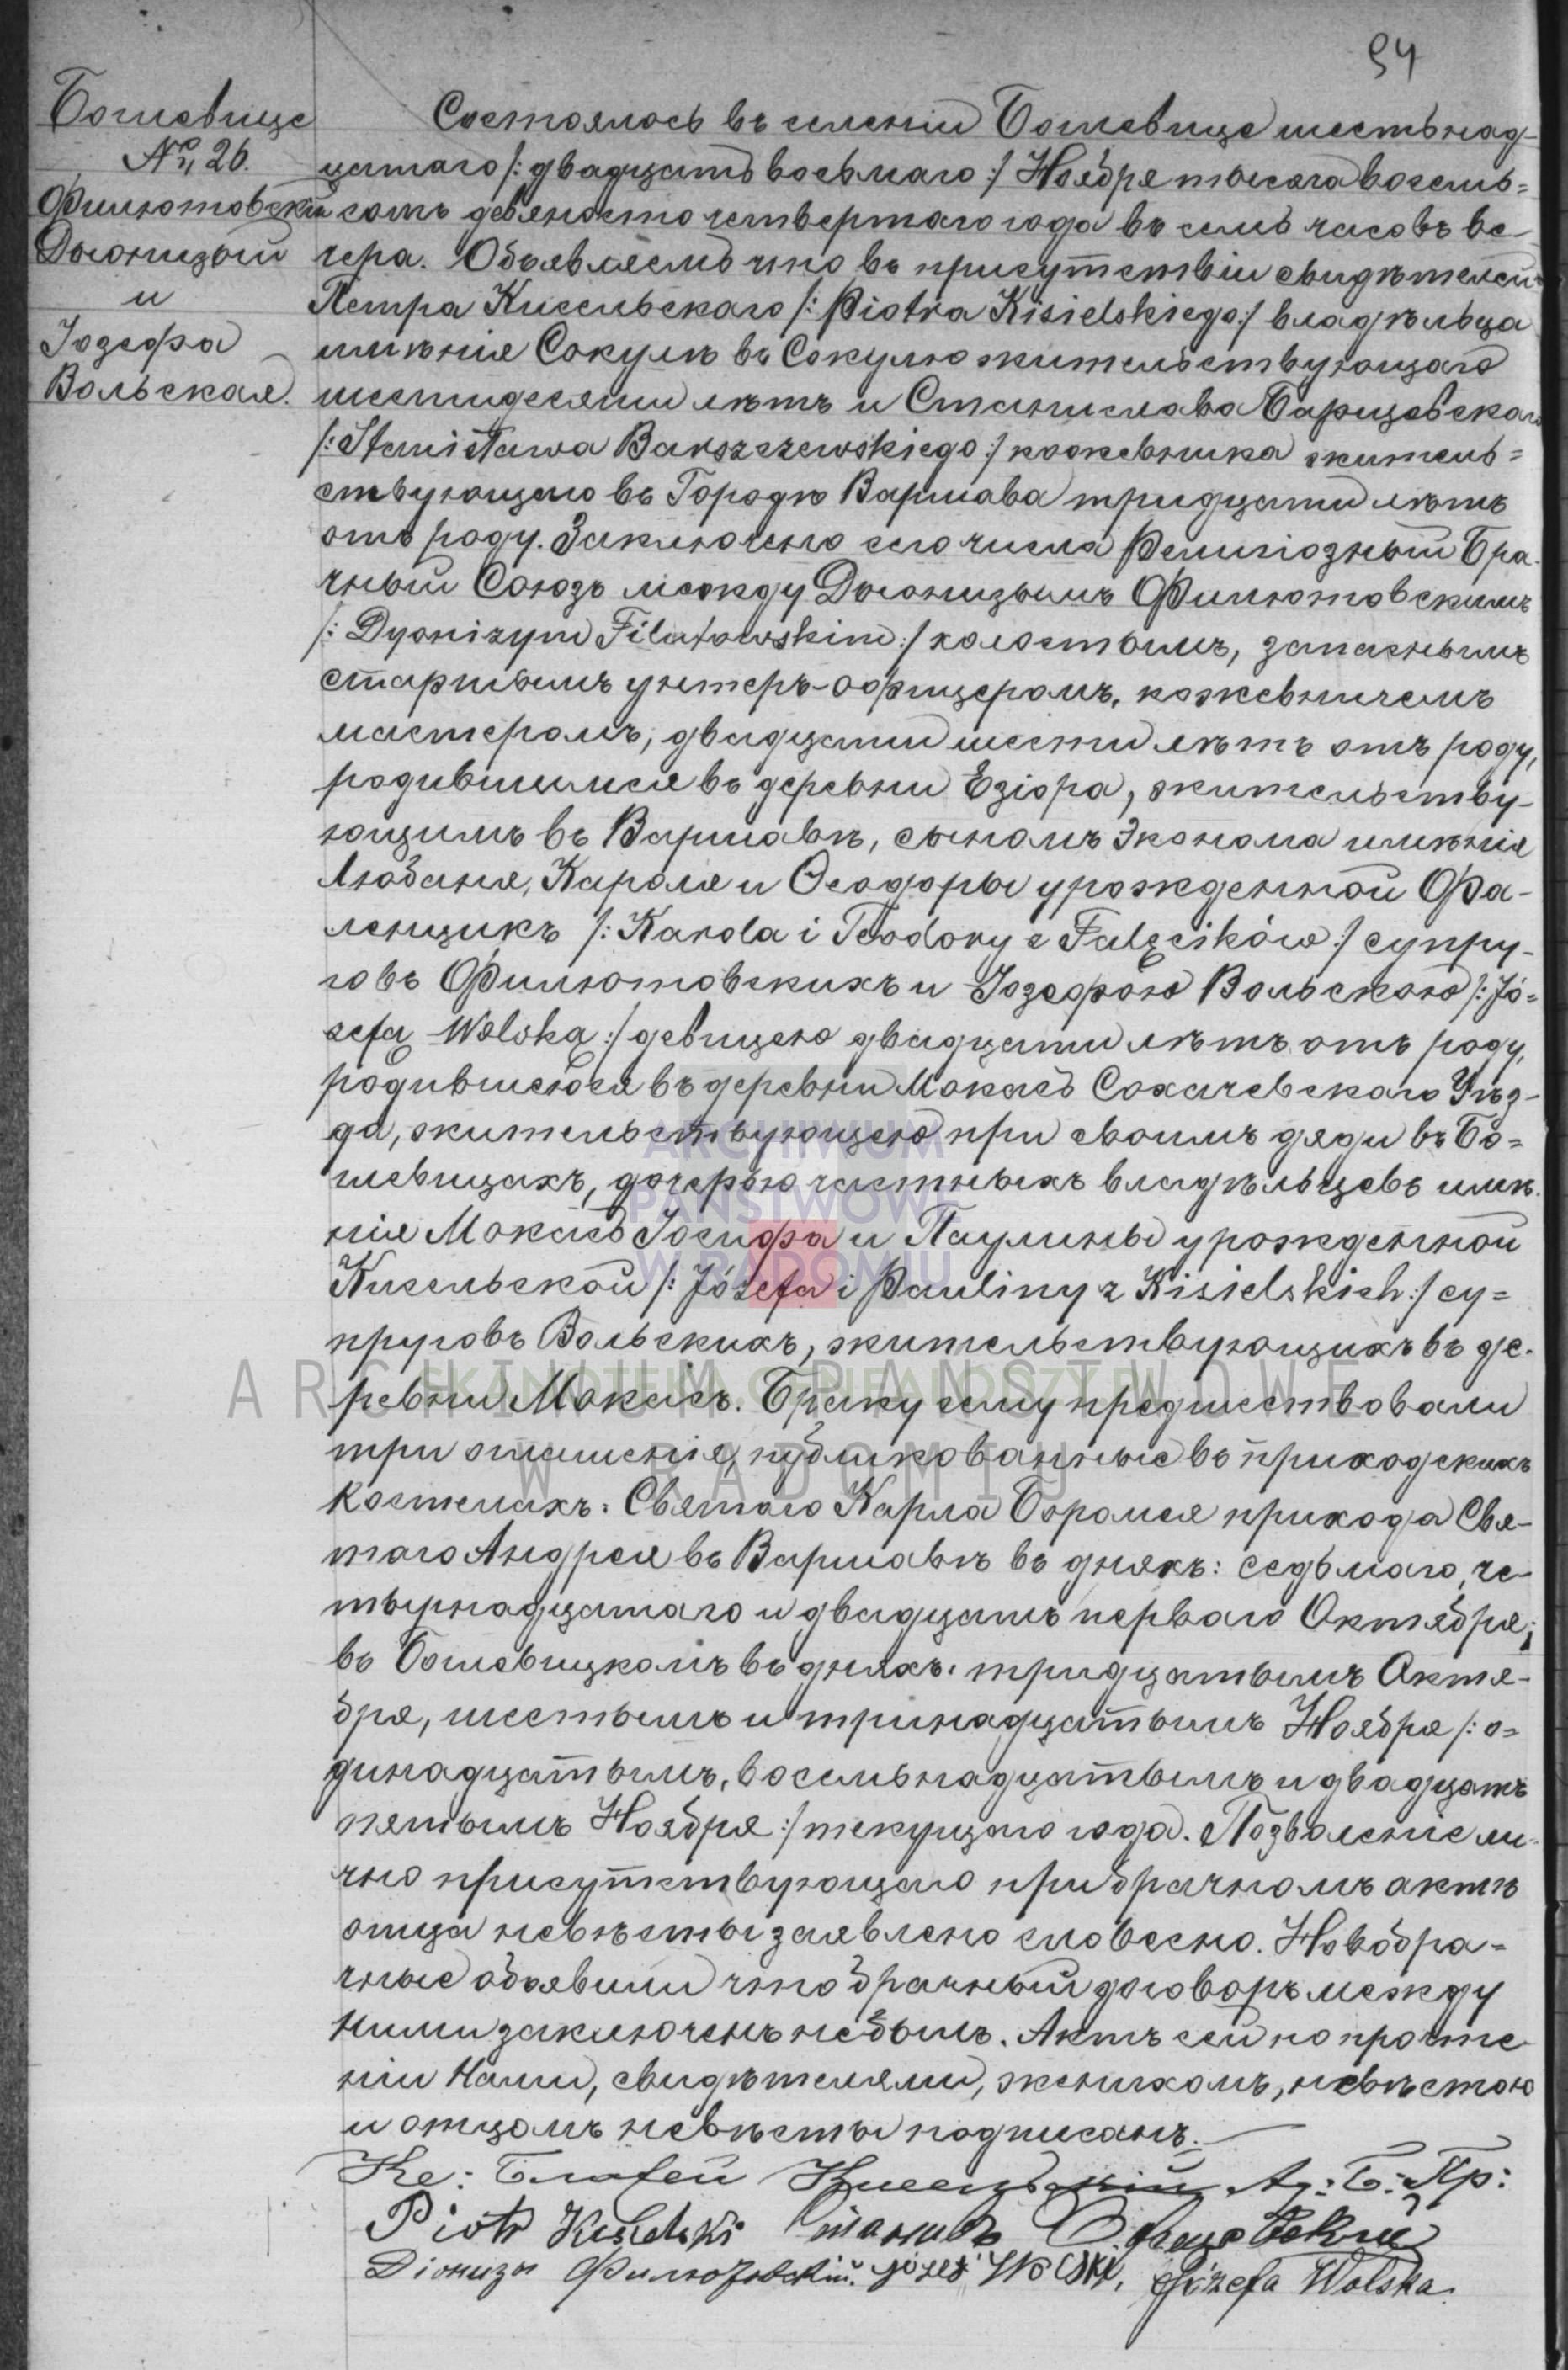 94
Бошевице
№ 26.
Филютовски
Дыонизый
и
Іозефа
Вольская.
Состоялось въ селеніи Бошевице шестьнад-
цатаго /: двадцать восьмаго :/ Ноября тысяча восемь=
сотъ девяносто четвертаго года въ семь часовъ ве-
чера. Объявляемъ что въ присутствіи свидѣтелей
Петра Кисельскаго /: Piotra Kisielskiego :/ владѣльца
имѣнія Сокулѣ въ Сокулю жительствующаго
шестидесяти лѣтъ и Станислава Барщевскаго
/: Stanisława Barszczewskiego :/ кожевника житель=
ствующаго въ Городѣ Варшава тридцати лѣтъ
отъ роду. Заключено сего числа Религіозный Бра-
чный Союзъ между Дыонизымъ Филютовскимъ
/: Dyonizym Filutowskim :/ холостымъ, запаснымъ
старшымъ унтеръ-оофицеромъ, кожевничемъ
мастеромъ, двадцати шести лѣтъ отъ роду,
родившимся въ деревни Езіора, жительству-
ющимъ въ Варшавѣ, сыномъ Эконома имѣнія
Любаня, Кароля и Ѳеодоры урожденной Фа-
ленцикъ /: Karola i Teodory z Falęcików :/ супру-
говъ Филютовскихъ и Іозефою Вольскою /: Jó=
zefą Wolską :/ девицею двадцати лѣтъ отъ роду,
родившеюся въ деревни Мокасъ Сохачевскаго Уѣз-
да, жительствующею при своимъ дяди въ Бо=
шевицахъ, дочерью частныхъ владѣльцевъ имѣ-
нія Мокасъ Іосифа и Паулины урожденной
Кисельской /: Józefa i Pauliny z Kisielskich :/ су=
пруговъ Вольскихъ, жительствующихъ въ де-
ревни Мокасъ. Браку сему предшествовали
три оглашенія, публикованные въ приходскихъ
костелахъ: Святаго Карла Боромея прихода Свя-
таго Андрея въ Варшавѣ въ дняхъ: седьмаго, че-
тырнадцатаго и двадцать перваго Октября;
въ Бошевицкомъ въ дняхъ: тридцатымъ Октя-
бря, шестымъ и тринадцатымъ Ноября /: о=
динадцатымъ, восемьнадцатымъ и двадцать
пятымъ Ноября :/ текущаго года. Позволеніе ли-
чно присутствующаго при брачномъ актѣ
отца невѣсты заявлено словесно. Новобра=
чные объявили что брачный договоръ между
ними заключенъ небылъ. Актъ сей по прочте-
ніи Нами, свидѣтелями, женихомъ, невѣстою
и отцомъ невѣсты подписанъ.
Кс: Блажей Кисельскій Ад: Б: Пр:
Piotr Kisielski
Діонизы Филютовскій. Józef Wolski, Józefa Wolska.
ARCHIWUM
PAŃSTWOWE
W RADOMIU
ARCHIWUM PAŃSTWOWE
W RADOMIU